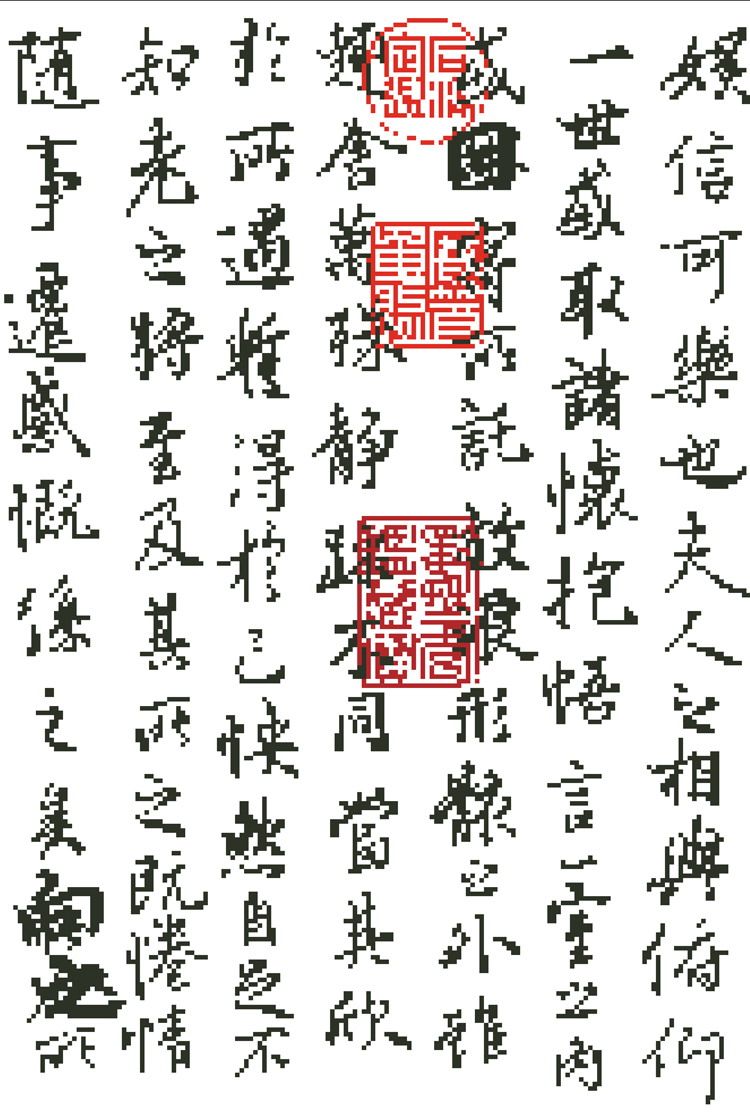 娛信可樂也夫人之相與俯仰
一世或取諸懷抱悟言一室之內
或因寄所託放浪形骸之外雖
趣舍萬殊靜躁不同當其欣
於所遇暫得於己怏然自足不
知老之將至及其所之既惓情
隨事遷感慨係之矣向之所